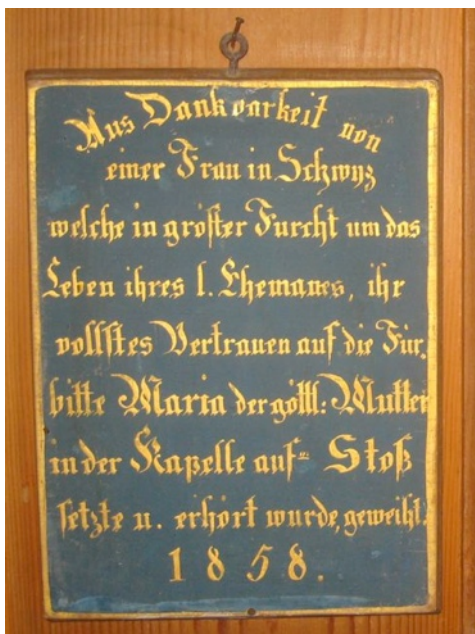 Aus Dankbarkeit von
einer Frau in Schwyz
welche in größter Furcht um das
Leben ihres l. Ehemanes, ihr
vollstes Vertrauen auf die Für.
bitte Maria der göttl: Mutter
in der Kapelle auf Stoß
setzte u. erhört wurde, geweiht.
1858.